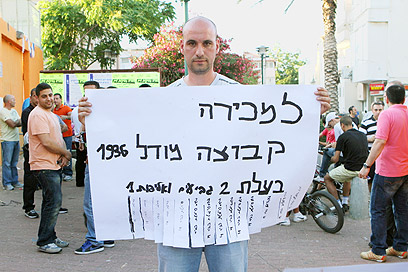 למכירה
קבוצה מודל 1936
בעלת 2 גביעים ואליפות 1